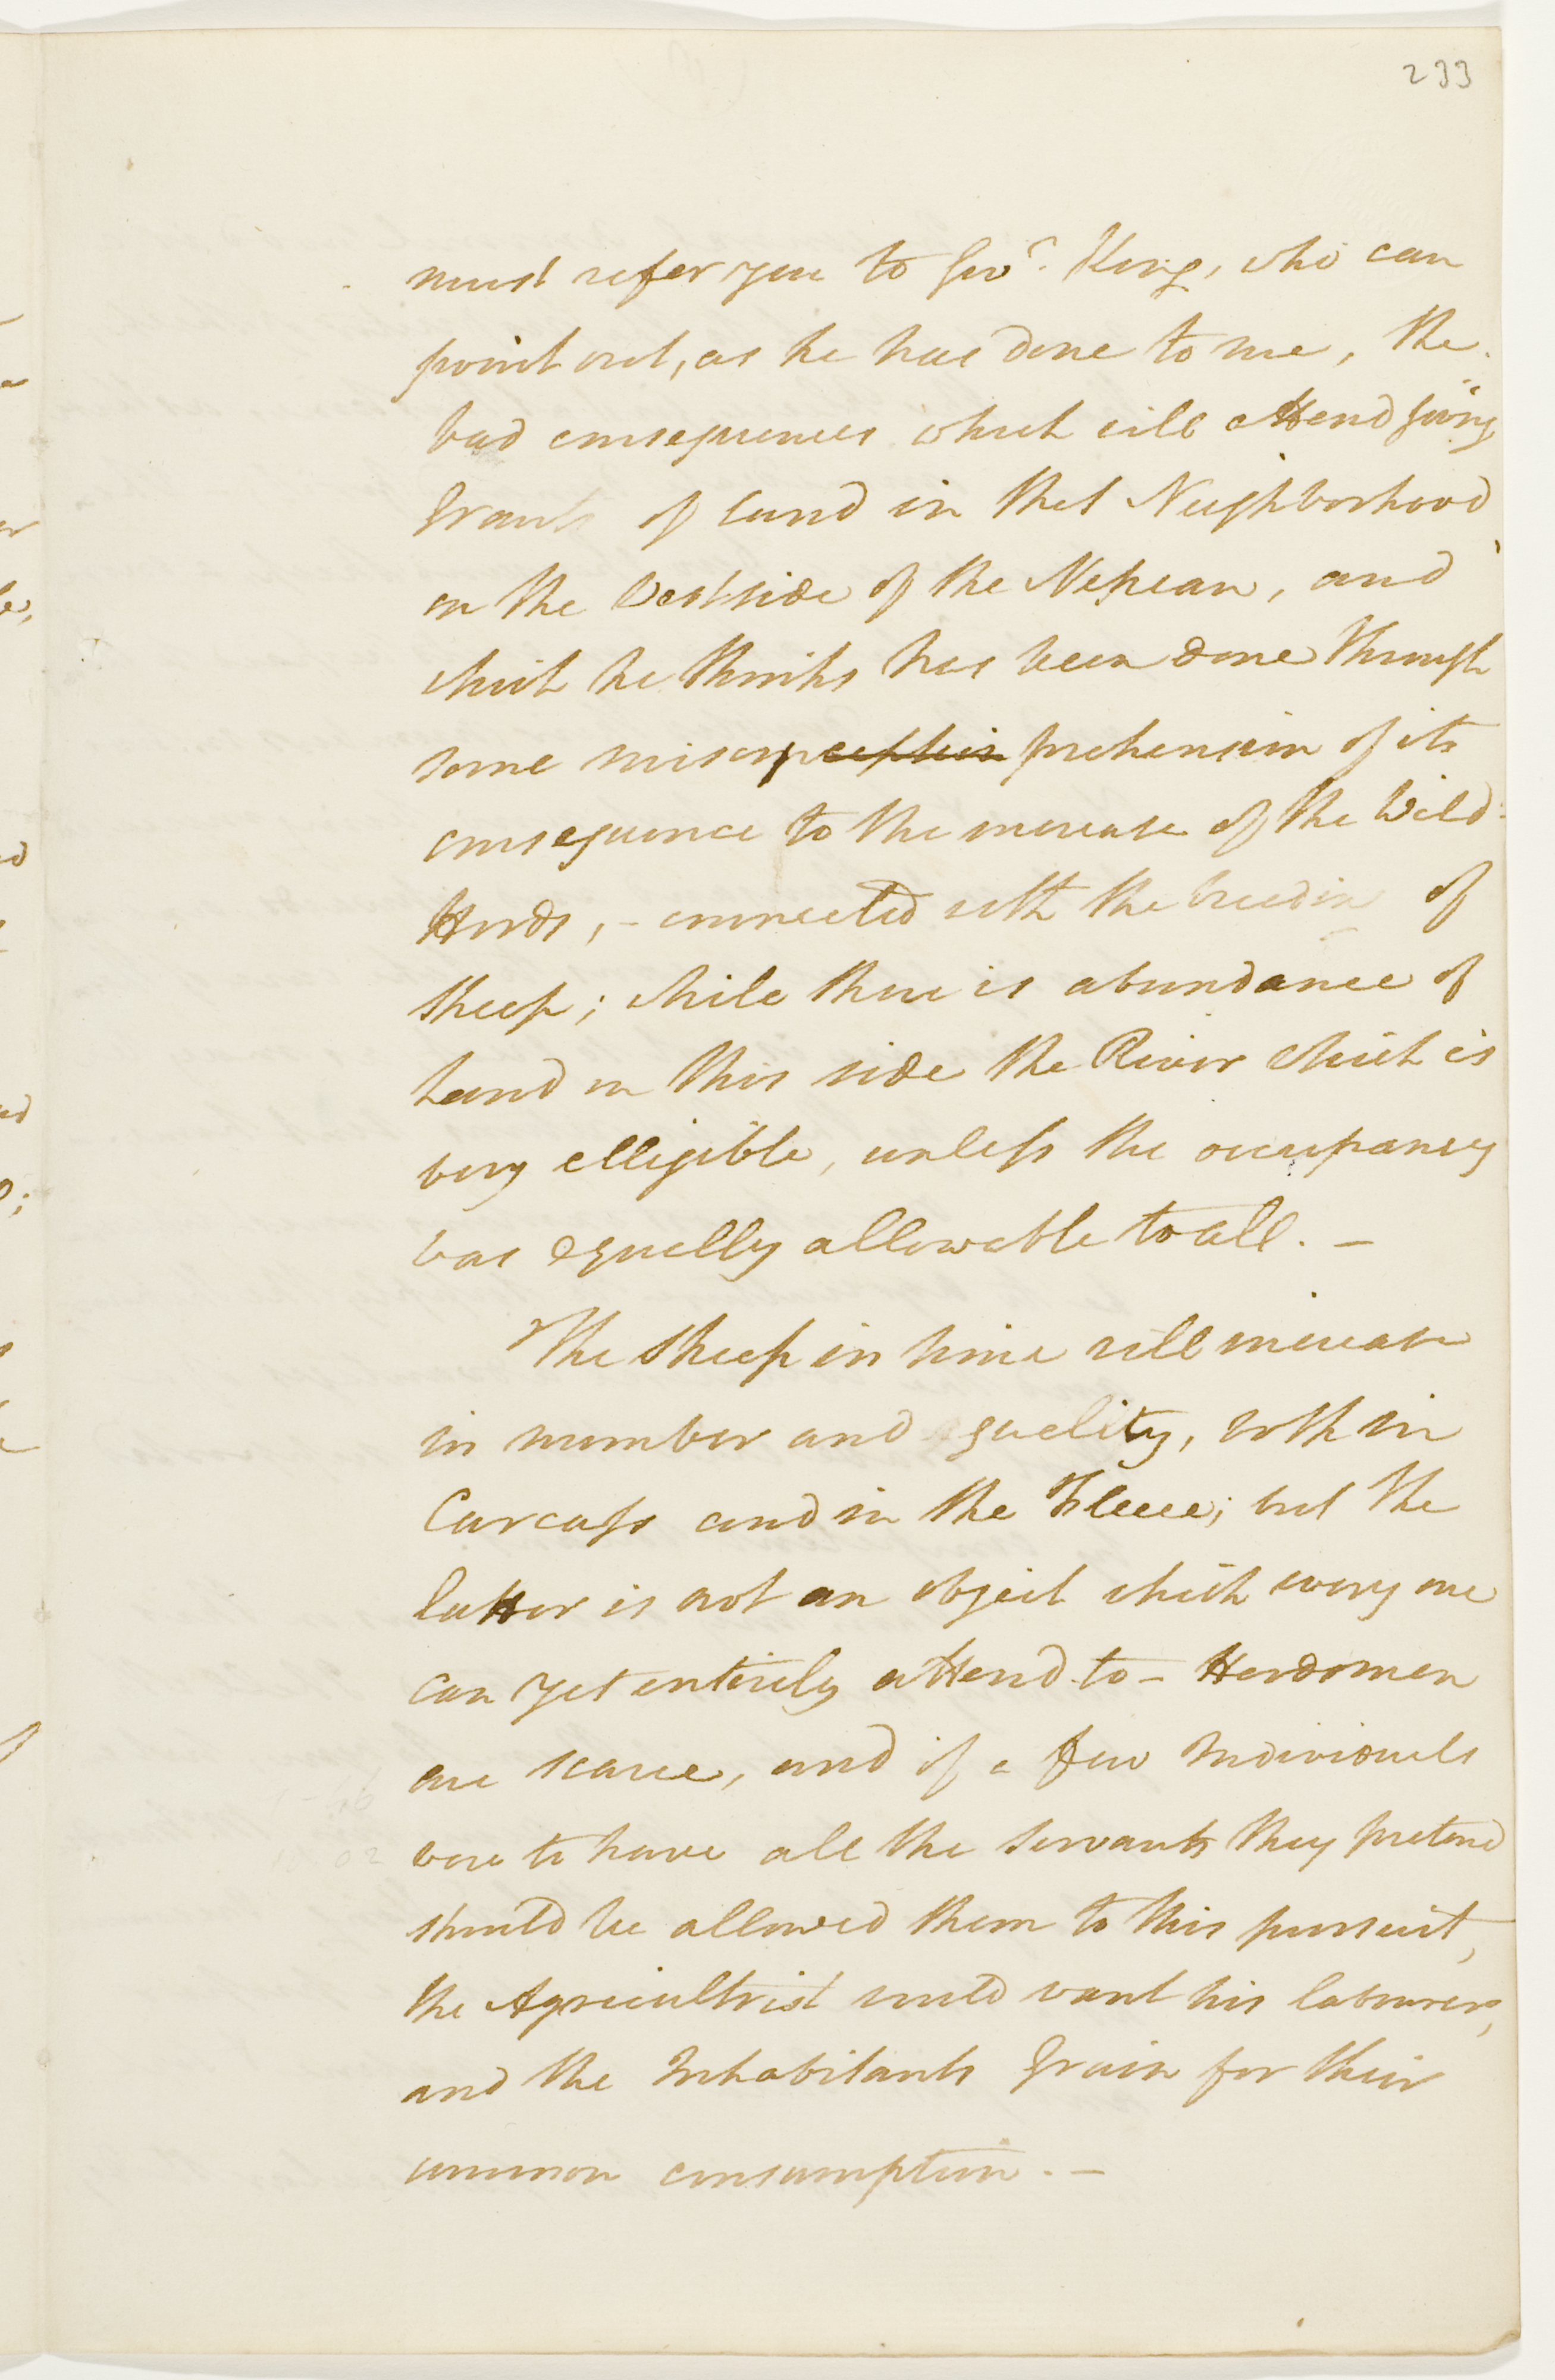 233
must refer you to Govr. King, who can
point out, as he has done to me, the
bad consequences which will attend giving
Grants of land in that Neighborhood
on the West side of the Nepean, and
which he thinks has been done through
some misconception prehension of its
consequence to the increase of the Wild
Herds, - connected with the breeding of
Sheep; while there is abundance of
Land on this side the River which is
very elligible, unless the occupancy
was equally allowable to all. -
The Sheep in time will increase
in number and quality, both in
Carcass and in the Fleece; but the
latter is not an object which every one
can yet entirely attend to - Herdsmen
are scarce, and if a few Individuals
were to have all the Servants they pretend
should be allowed them to this pursuit,
the Agricultrist would want his labourers,
and the Inhabitants Grain for their
common consumption. -